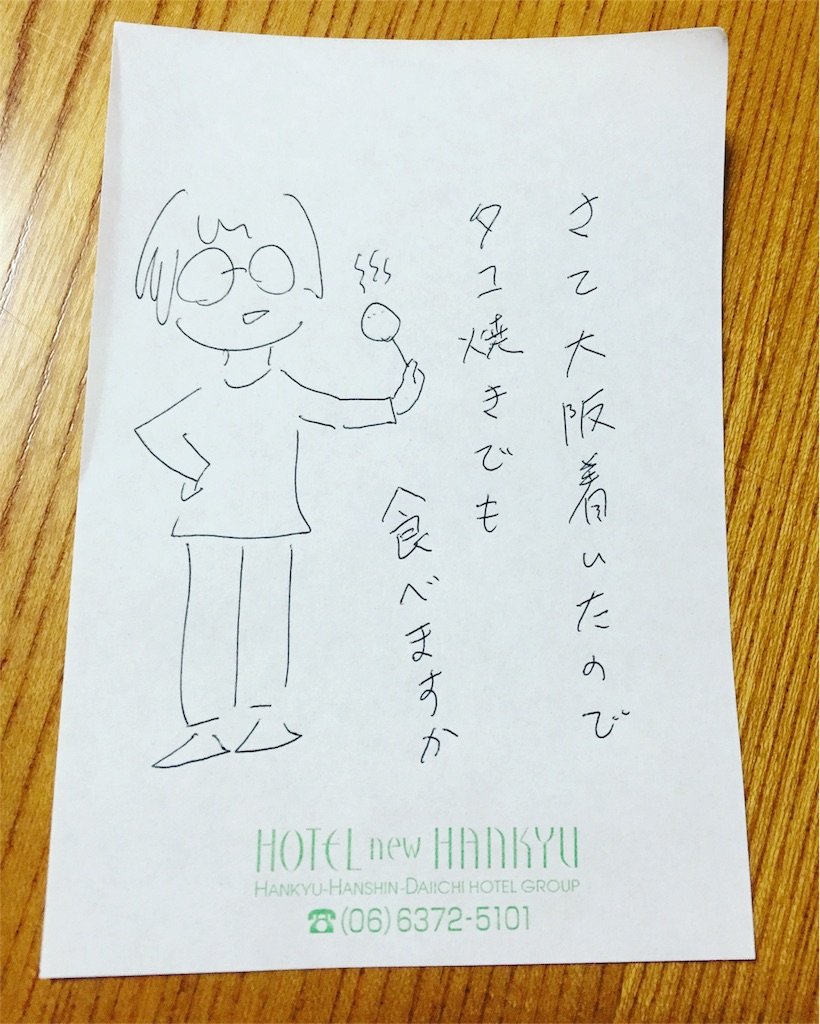 さて大阪着いたので
タコ焼きでも
食べますか
HOTEL new HANKYU
HANKYU-HANSHIN-DAIICHI HOTEL GROUP
☎(06)6372-5101